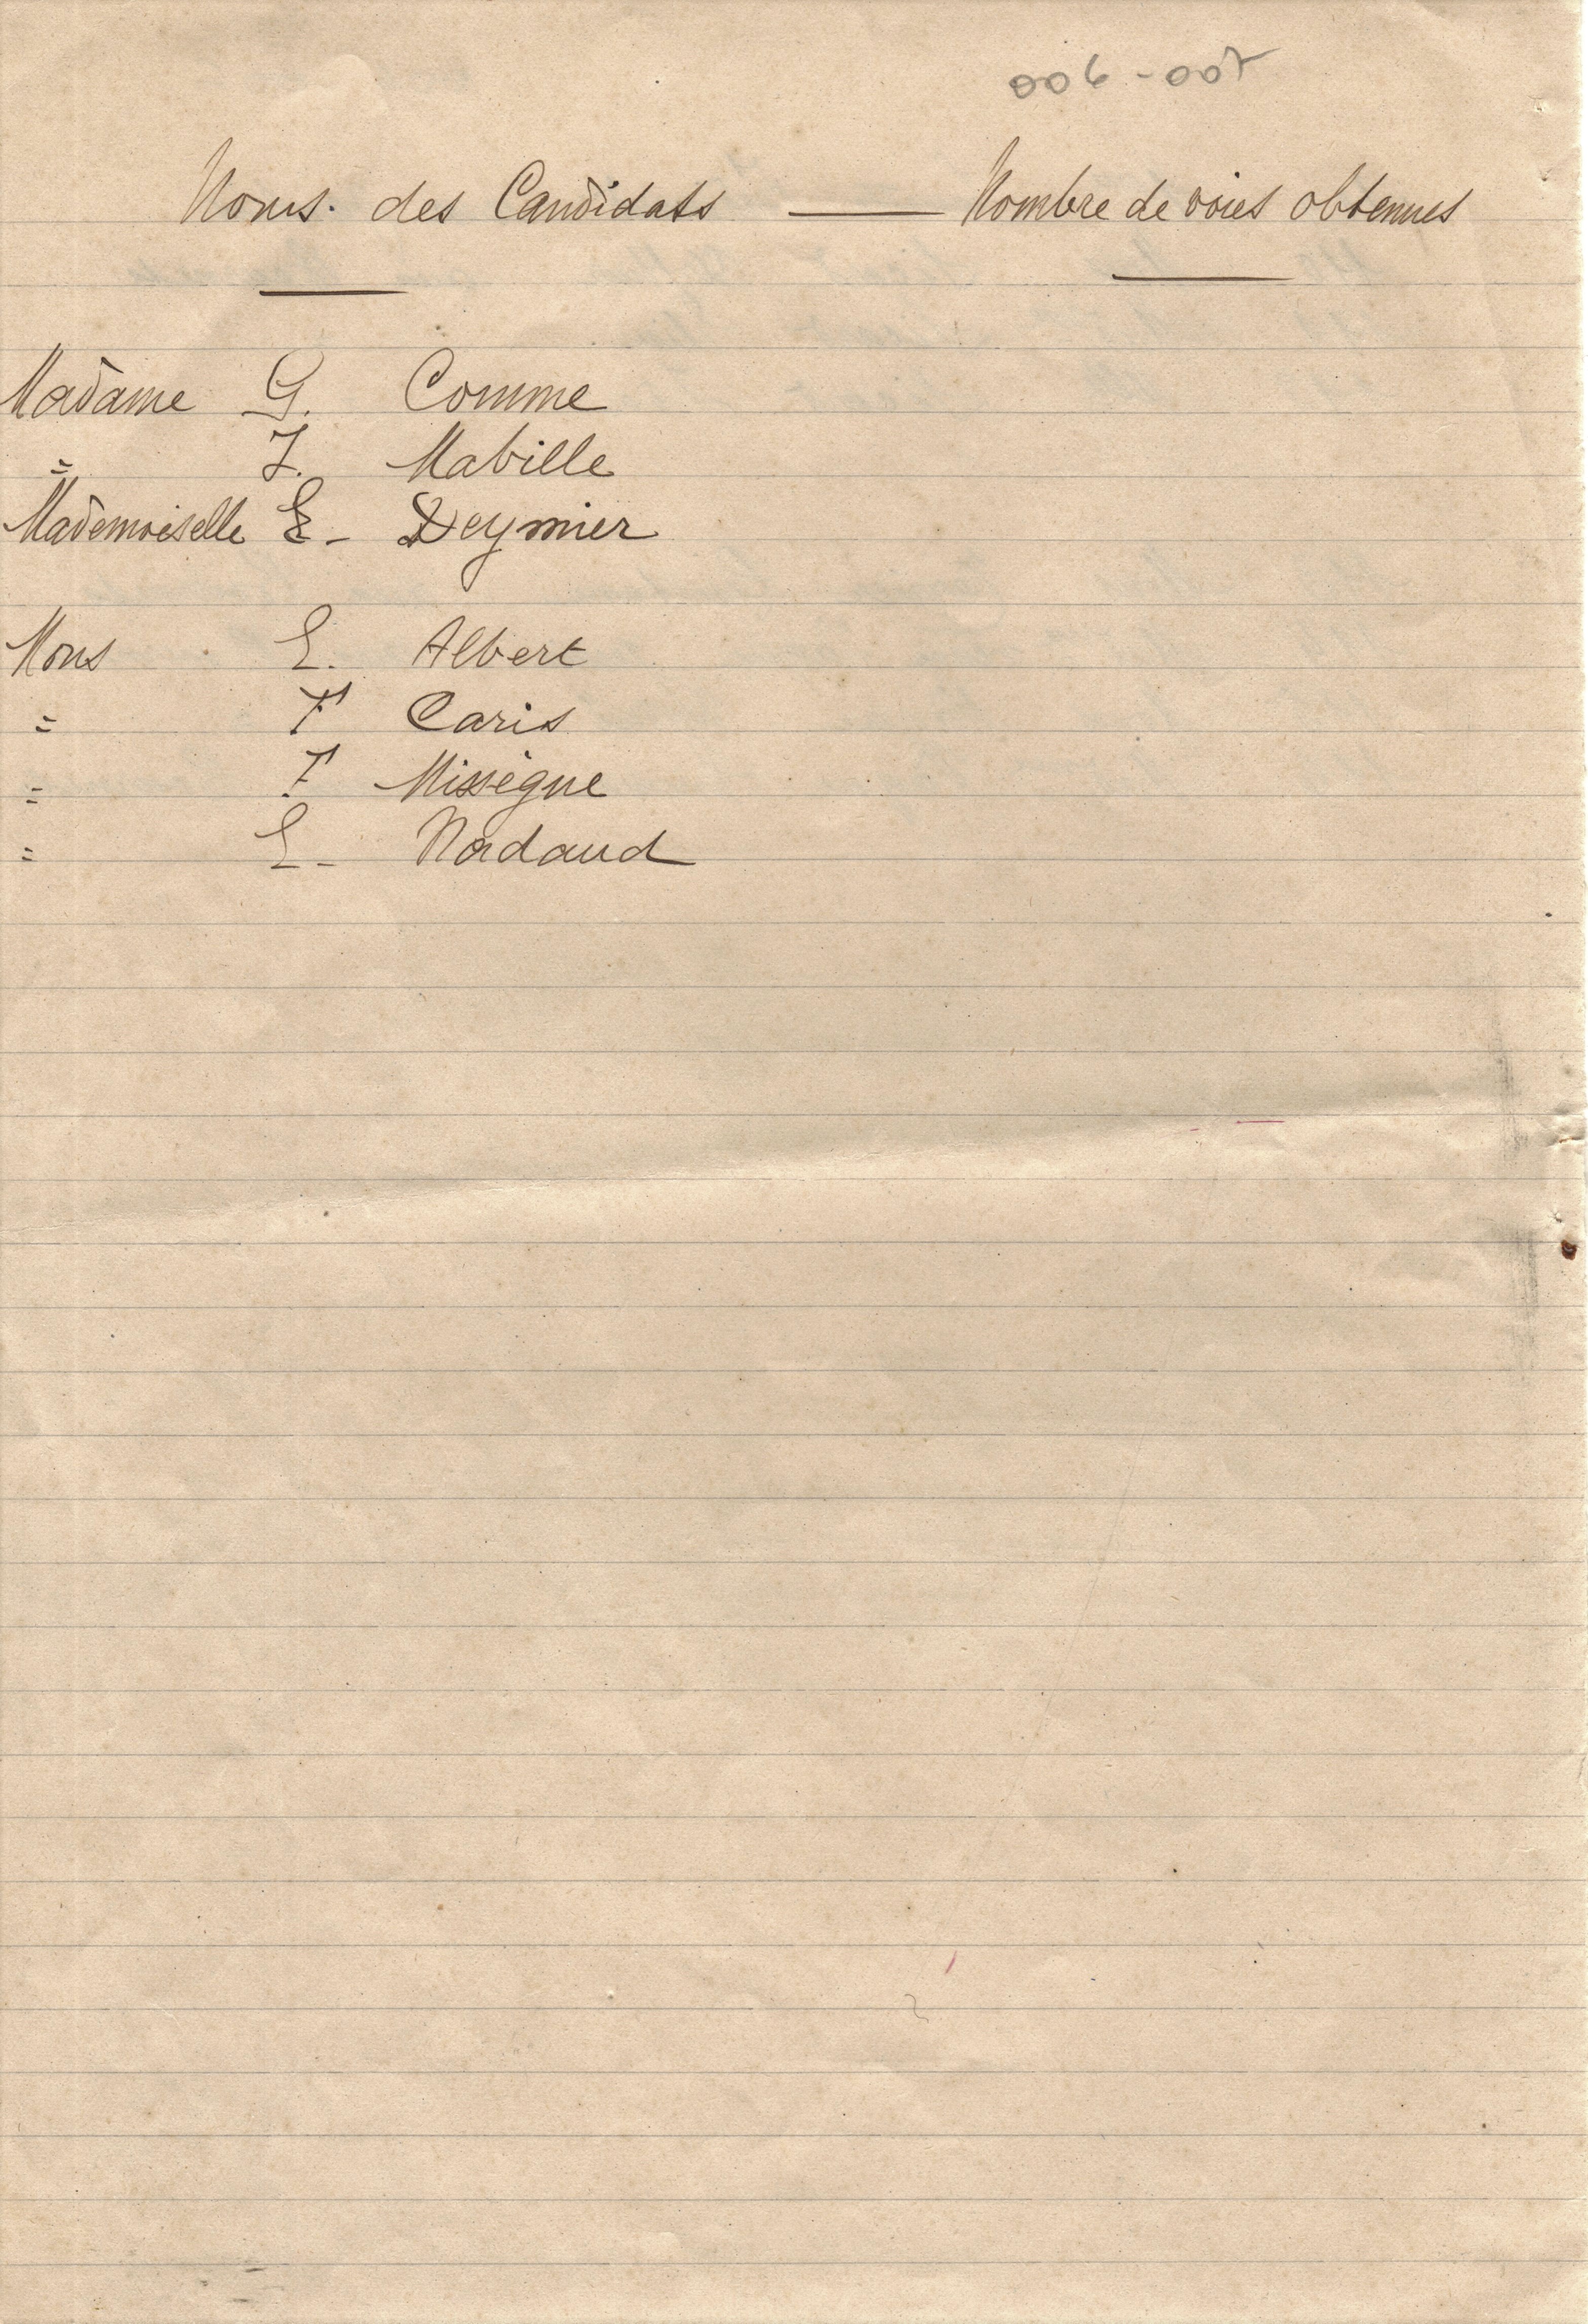 006-007
Noms. des Candidats — Nombre de voies obtenues
Madame G. Comme
= J. Mabille
Mademoiselle E- Deymier
Mons E. Albert
= F Caris
= F Missègue
= E- Nadaud